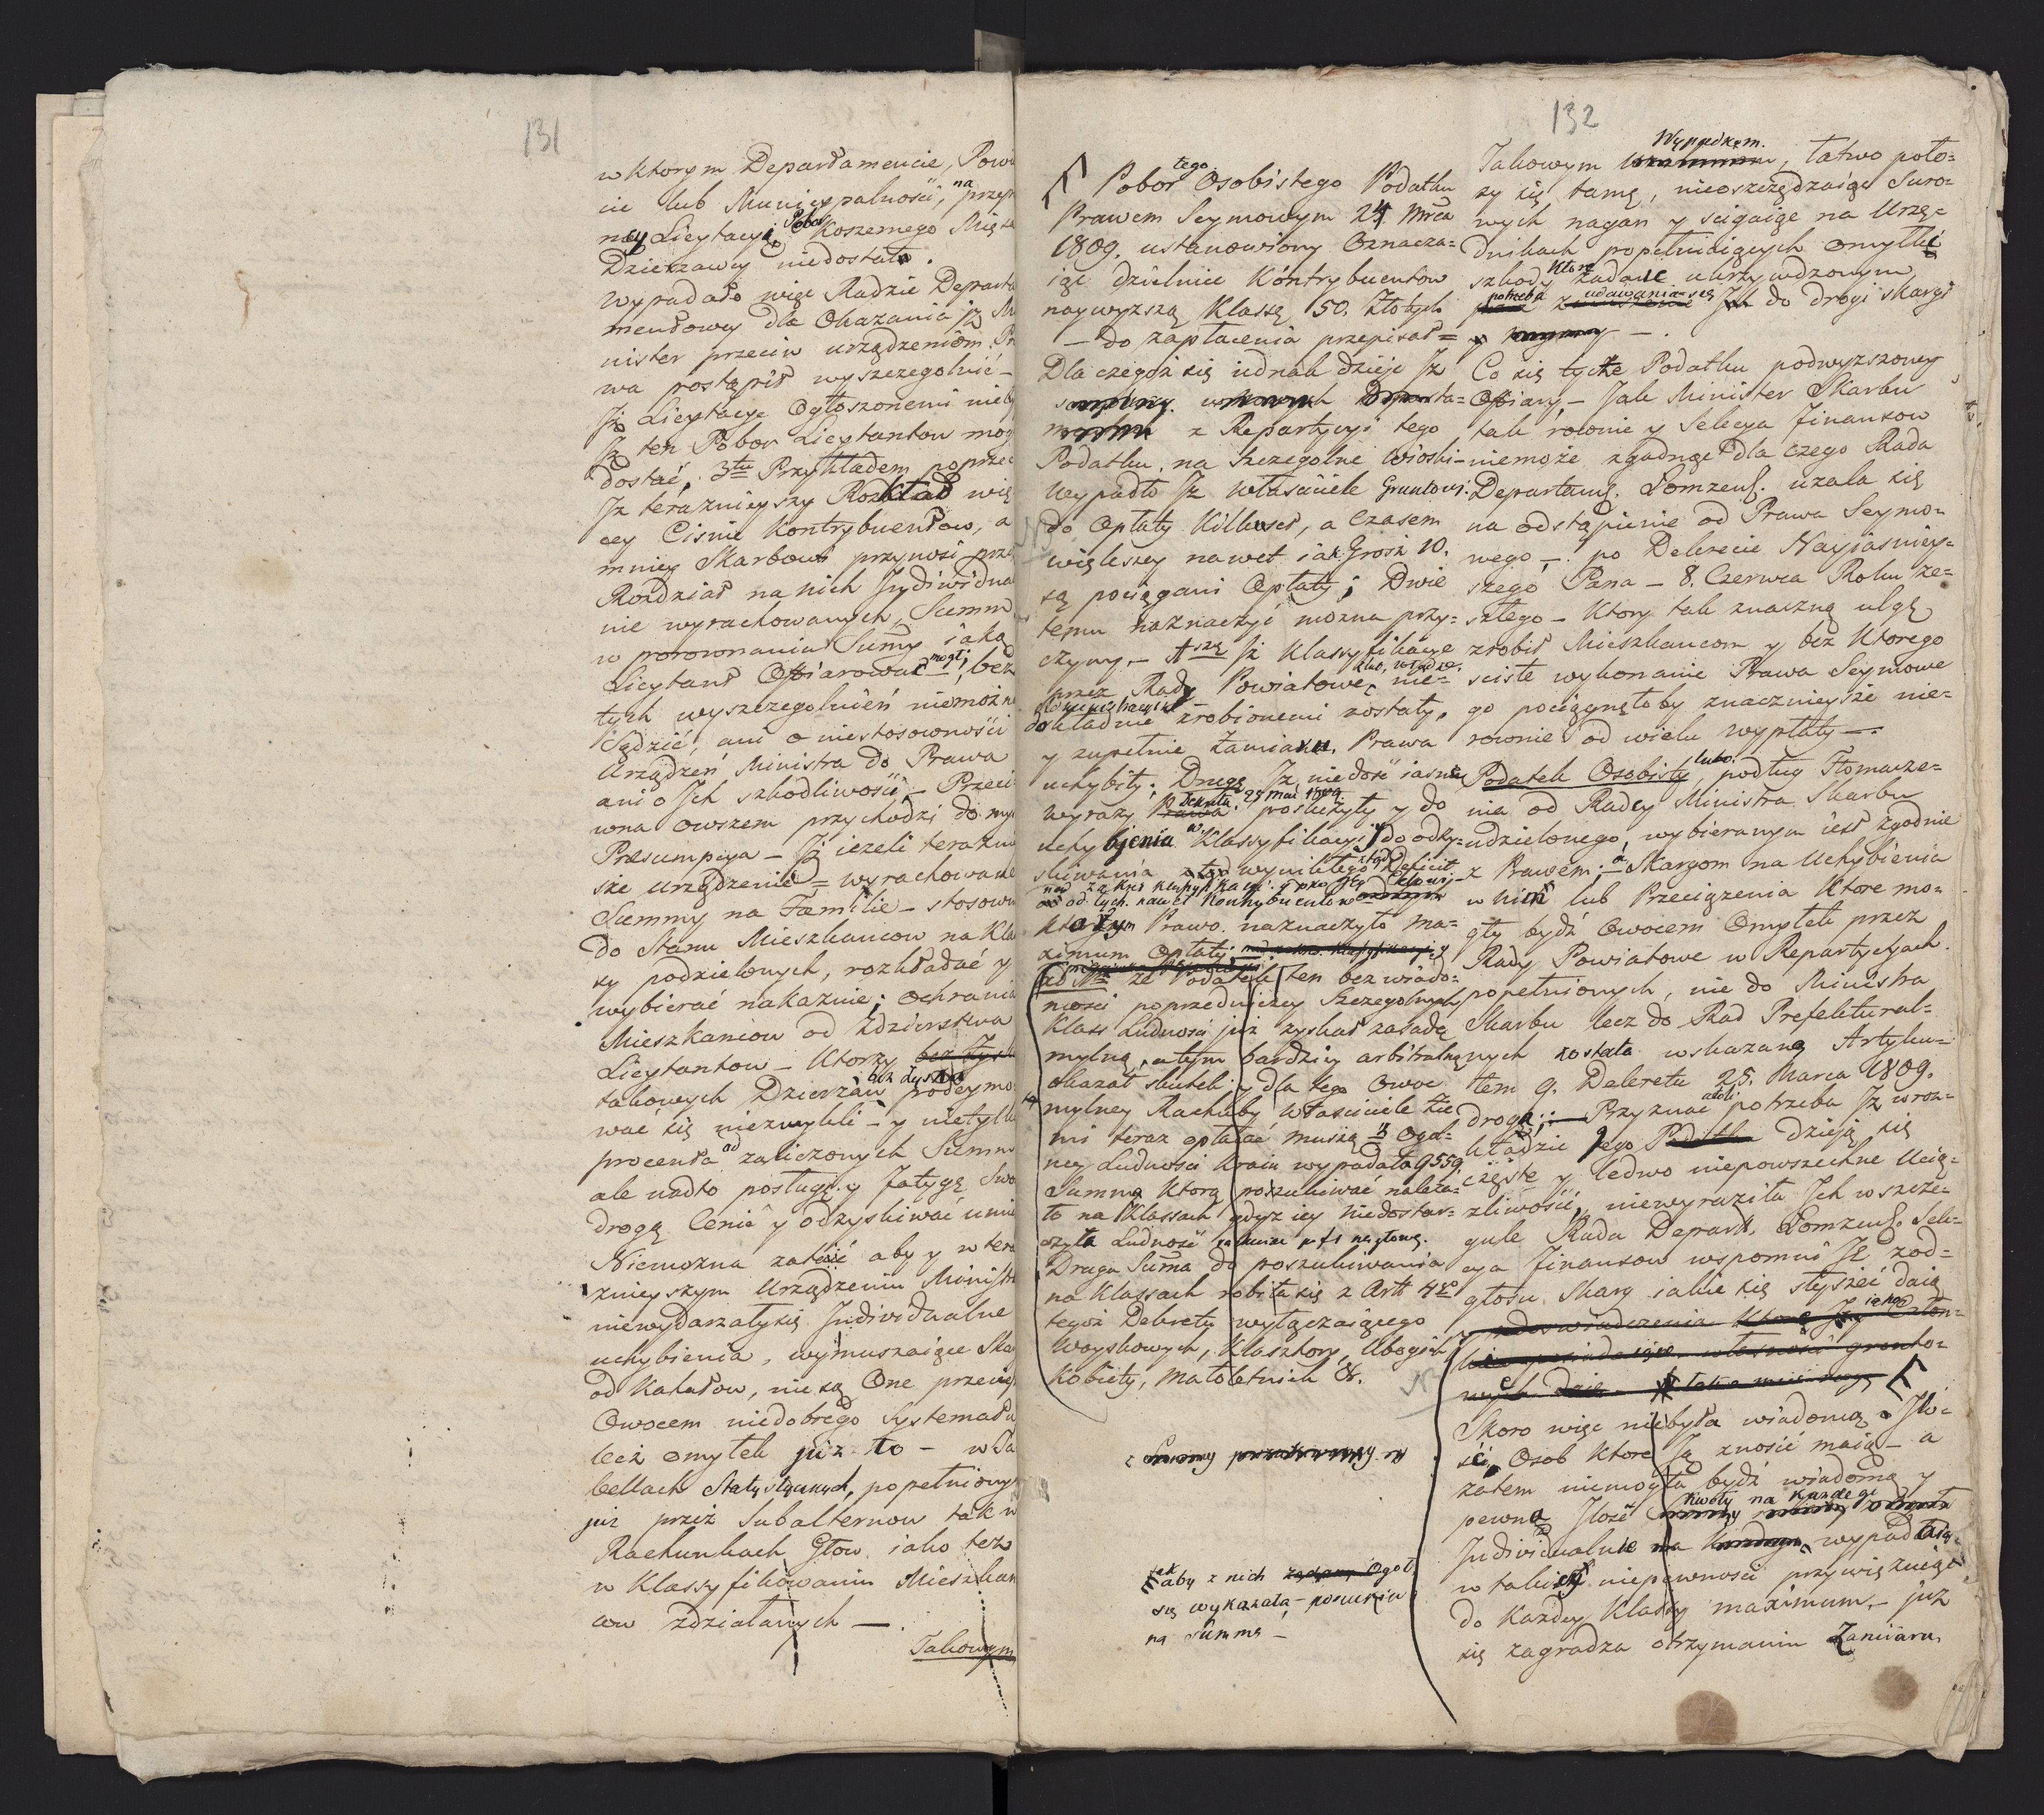 131
w ktorym Departamencie, Powi
cie lub Municypalności, na przepi
ney Licytacyi Pobor Koszernego Mięsa
Dzierzawcy niedostało.
Wypadało więc Radzie Departa
mentowey dla Okazania iż Mi
nister przeciw urządzeniom Pr
wa postąpił wyszczegolnić -
Iż Licytacye Ogłoszonemi nieby
Iż ten Pobor Licytantow mog
dostać, 3tu Przykładem poprzed
Iż teraznieyszy Rozkład wię
cey Cisnie Kontrybuentow, a
mniey Skarbowi przynosi przez
Rozdział na nich Indiwidual
nie wyrachowanych Summ
w porownaniu Sumy iaką
Licytant Offiarować mogł; bez
tych wyszczegolnień niemożna
Sądzić, ani o niestosowności
Urządzeń Ministra do Prawa
ani o Ich szkodliwości - Przeci
wna owszem przychodzi do my
Præsumpcya - Iż ieżeli teraznie
sze urządzenie = wyrachowane
Summy na Familie - stosown
do Stanu Mieszkancow na Kla
sy podzielonych, rozkładać y
wybierać nakaznie; ochrania
Mieszkancow od Zdzierstwa
Licytantow - Ktorzy bez Zysku
takowych Dzierżaw bez Zysku podeymo
wać się niezwykli - y nietylko
procenta ad zaliczonych Summ
ale nadto posługę y fatygę Swo
drogą Cenić y odzyskiwać umie
Niemożna zataić aby y w tera
znieyszym Urządzeniu Ministra
niewydarzały się Individualne
uchybienia, wymuszaiące Skar
od Kahałow, nie są One przecież
Owocem niedobrego Systematu
lecz omyłek już to - w Ta
bellach Statystycznych, popełniony
już przez Subalternow tak w
Rachunkach Głow iako też
w Klassyfikowaniu Mieszkan
cow zdziałanych -
Takowym
132
Pobor tego Osobistego Podatku
Prawem Seymowym 24 Mrca
1809. ustanowiony Oznacza=
iąc dzielnie Kontrybuentow
naywyższą Klassę 50. Złotych
- do zapłacenia przepisał =
Dla czegoż się iednak dzieie Iż
z Repartycyi tego
Podatku, na szczegolne Wioski -
Wypadło Iż własciciele Gruntowi
do Opłaty Kilkuset, a Czasem
większey nawet iak Grosz 10.
są pociągani Opłaty; Dwie
temu naznaczyć można przy=
czyny - 1szą Iż Klassyfikacye
przez Rady Powiatowe, nie=
dokładnie zrobionemi zostały,
y zupełnie Zamiaru Prawa
uchybiły; Drugą Iż niedość iasne
wyrazy Dekretu 25 Mar 1809 posłużyły y do
uchybienia w Klassyfikacyi y do odzy=
skiwania ztąd wynikłego deficit
od tych nawet Kontrybuentow
ktorym Prawo naznaczyło ma=
ximum Opłaty;
że Podatek ten bez wiado=
mości poprzedniczey Szczegolnych
Klass Ludności już zyskał zasadę
mylną, a tym bardziey arbitralną
okazał skutek y dla tego Owoc
mylney Rachuby, własciciele Zie
mi teraz opłacać muszą z Ogol=
ney Ludności Kraiu wypadała 9559
Summa Ktorą poszukiwać należa=
ło na Klassach gdyż iey niedostar=
czyła Ludność rachuiąc po f1 na głowę.
Druga Suma do poszukiwania
na Klassach robiła się z Artt 4go
tegoż Dekretu wyłączaiącego
Woyskowych, Klasztory, Ubogich
Kobiety, małoletnich &.
z Summy
tak aby z nich Ogoł
się wykazała - poszukiwa
na summa -
Wypadkom.
Takowym, łatwo poło=
ży się tamę, nieoszczędzaiąc Suro=
wych nagan y sciągaiąc na Urzę=
dnikach popełniaiących omyłki
szkody Ktore zadane ukrzywdzonym
potrzeba udawania się Im do drogi skargi
Co się tycze Podatku podwyższoney
Offiary - Jak Minister Skarbu
tak rownie y Sekcya Finansow
niemoże zgadnąć Dla czego Rada
Departams. Łomzens. użala się
na odstąpienie od Prawa Seymo=
wego - po Dekrecie Nayiasniey=
szego Pana - 8. Czerwca Roku ze=
szłego - Ktory tak znaczną ulgę
zrobił Mieszkancom y bez Ktorego
scisłe wykonanie Prawa Seymowe
go pociągnęłoby znacznieysze nie=
rownie od wielu wypłaty -
Podatek Osobisty lubo, podług Tłomacze=
nia od Radcy Ministra Skarbu
udzielonego, wybieranym iest zgodnie
z Prawem; a Skargom na Uchybienia
w nim lub Przeciążenia Ktore mo=
gły bydź Owocem Omyłek przez
Rady Powiatowe w Repartycyach
popełnionych, nie do Ministra
Skarbu lecz do Rad Prefektural=
nych została wskazana Artyku=
łem 9. Dekretu 25. Marca 1809.
droga; Przyznać atoli potrzeba Iż w roz=
kładzie tego Podatku dzieją się
częste y ledwo niepowszechne Ucią=
żliwości, niewyraziła Ich w szcze=
gule Rada Depart. Łomzens. Sek=
cya Finansow wspomni Iż z od=
głosu Skarg iakie się słyszeć daią
Skoro więc niebyła wiadomą Ilo=
ść, Osob Ktore Ią znosić maią - a
zatem niemogła bydź wiadomą y
pewną Ilość Kwoty na Każdego
Individualnie wypadaią=
w takiey niepewności przywiązuiąc
do Każdey Klassy maximum - już
się zagradza otrzymaniu Zamiaru